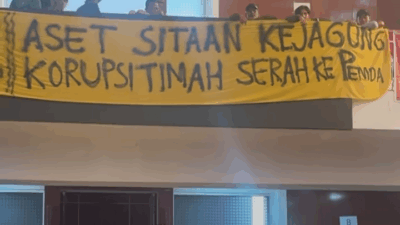 ASET SITAAN KEJAGUNG
KORUPSI TIMAH SERAH KE PEMDA